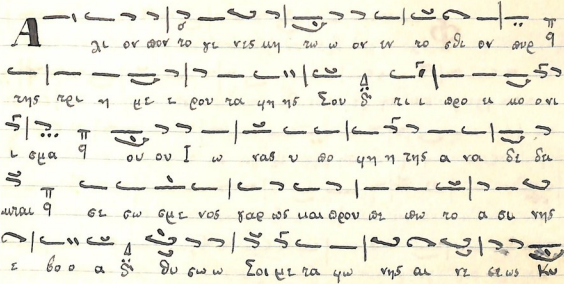 Α λι ον πον το γε νες κη τω ω ον εν το σθι ον πυρ
της τρι η με ε ρου τα φη ης Σου τι ι προ ει κο ονι
ι σμα ου ου Ι ω νας υ πο φη η της α να δε δει
κται σε σω σμε νος γαρ ως και πρου πε πω το α σι νης
ε βο ο α θυ σω ω Σοι με τα φω νης αι νε σε ως Κυ